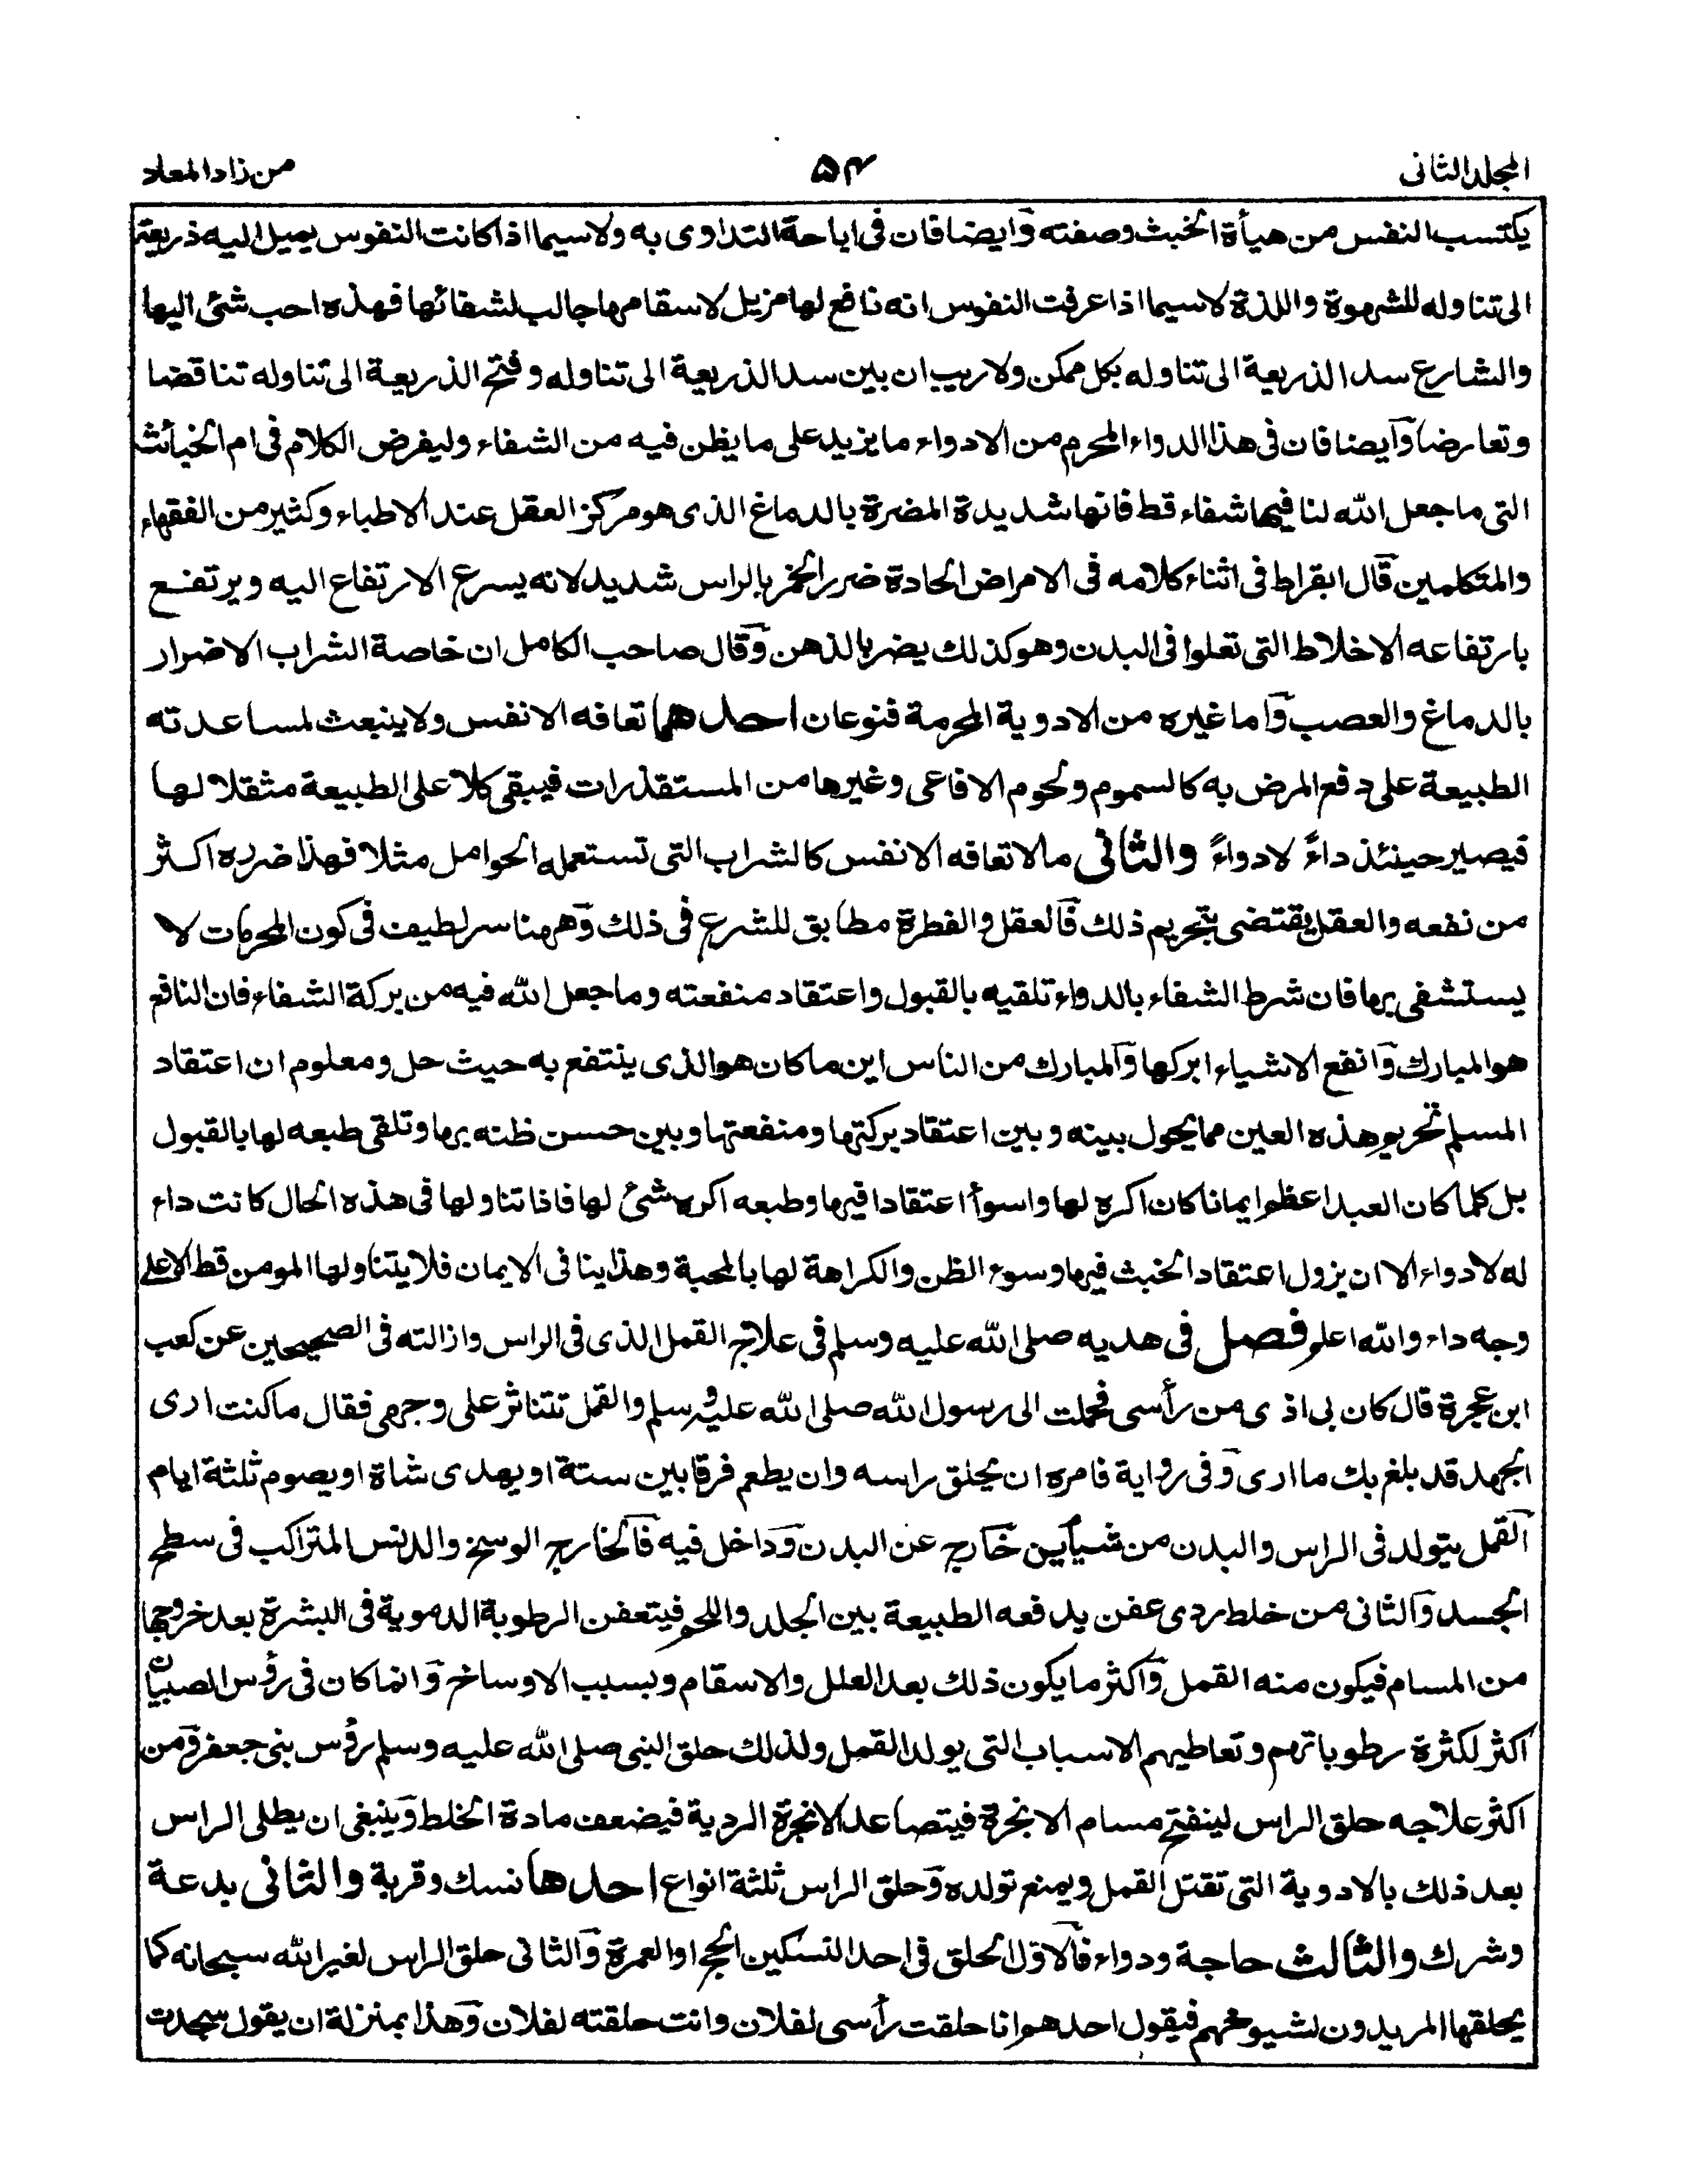 المجلد الثانى
۵۴
من زاد المعاد
يكتسب النفس من هيأة الخبث وصفته وايضا فان فى اباحة التداوى به ولاسيما اذا كانت النفوس يميل اليه ذريعة
الى تناوله للشهوة واللذة لاسيما اذا عرفت النفوس انه نافع لها مزيل لاسقامها جالب لشفائها فهذه احب شئ اليها
والشارع سد الذريعة الى تناوله بكل ممكن ولا ريب ان بين سد الذريعة الى تناوله وفتح الذريعة الى تناوله تناقضا
وتعارضا وايضا فان فى هذا الدواء المحرم من الادواء ما يزيد على ما يظن فيه من الشفاء وليفرض الكلام فى ام الخبائث
التى ما جعل الله لنا فيها شفاء قط فانها شديدة المضرة بالدماغ الذى هو مركز العقل عند الاطباء وكثير من الفقهاء
والمتكلمين قال ابقراط فى اثناء كلامه فى الامراض الحادة ضرر الخمر بالراس شديد لانه يسرع الارتفاع اليه ويرتفع
بارتفاعه الاخلاط التى تعلوا فى البدن وهو كذلك يضر بالذهن وقال صاحب الكامل ان خاصة الشراب الاضرار
بالدماغ والعصب واما غيره من الادوية المحرمة فنوعان احدهما تعافه الانفس ولا ينبعث لمساعدته
الطبيعة على دفع المرض به كالسموم ولحوم الافاعى وغيرها من المستقذرات فيبقى كلا على الطبيعة مثقلا لها
فيصير حينئذ داءً لادواءً والثانى مالا تعافه الانفس كالشراب التى تستعمله الحوامل مثلا فهذا ضرره اكثر
من نفعه والعقل يقتضى بتحريم ذلك فالعقل والفطرة مطابق للشرع فى ذلك وههنا سر لطيف فى كون المحرمات لا
يستشفى بها فان شرط الشفاء بالدواء تلقيه بالقبول واعتقاد منفعته وما جعل الله فيه من بركة الشفاء فان النافع
هو المبارك وانفع الاشياء ابركها والمبارك من الناس اين ما كان هو الذى ينتفع به حيث حل ومعلوم ان اعتقاد
المسلم تحريم هذه العين مما يحول بينه وبين اعتقاد بركتها ومنفعتها وبين حسن ظنه بها وتلقى طبعه لها بالقبول
بل كلما كان العبد اعظم ايمانا كان اكره لها واسوأ اعتقادا فيها وطبعه اكره شئ لها فاذا تناولها فى هذه الحال كانت داء
له لادواء الا ان يزول اعتقاد الخبث فيها وسوء الظن والكراهة لها بالمحبة وهذا ينافى الايمان فلا يتناولها المومن قط الا على
وجه داء والله اعلم فصل فى هديه صلى الله عليه وسلم فى علاج القمل الذى فى الراس وازالته فى الصحيحين عن كعب
ابن عجرة قال كان بى اذى من رأسى فحملت الى رسول الله صلى الله عليه وسلم والقمل تتناثر على وجهى فقال ما كنت ارى
الجهد قد بلغ بك ما ارى وفى رواية فامره ان يحلق راسه وان يطعم فرقا بين ستة او يهدى شاة او يصوم ثلثة ايام
القمل يتولد فى الراس والبدن من شيأين خارج عن البدن وداخل فيه فالخارج الوسخ والدنس المتراكب فى سطح
الجسد والثانى من خلط ردى عفن يدفعه الطبيعة بين الجلد واللحم فيتعفن الرطوبة الدموية فى البشرة بعد خروجها
من المسام فيكون منه القمل واكثر ما يكون ذلك بعد العلل والاسقام وبسبب الاوساخ وانما كان فى رؤس الصبيان
اكثر لكثرة رطوباتهم وتعاطيهم الاسباب التى يولد القمل ولذلك حلق النبى صلى الله عليه وسلم رؤس بنى جعفر ومن
اكثر علاجه حلق الراس لينفتح مسام الابخرة فيتصاعد الابخرة الردية فيضعف مادة الخلط وينبغى ان يطلى الراس
بعد ذلك بالادوية التى تقتل القمل ويمنع تولده وحلق الراس ثلثة انواع احدها نسك وقربة والثانى بدعة
وشرك والثالث حاجة ودواء فالاول الحلق فى احد النسكين الحج او العمرة والثانى حلق الراس لغير الله سبحانه كما
يحلقها المريدون لشيوخهم فيقول احدهم انا حلقت رأسى لفلان وانت حلقته لفلان وهذا بمنزلة ان يقول سجدت